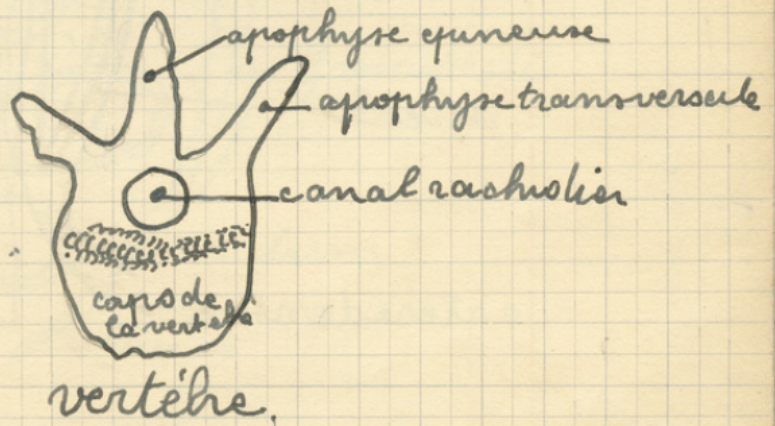 apophyse épineuse
apophyse transversale
canal rachidien
corps de
la vertèbre
vertèbre.